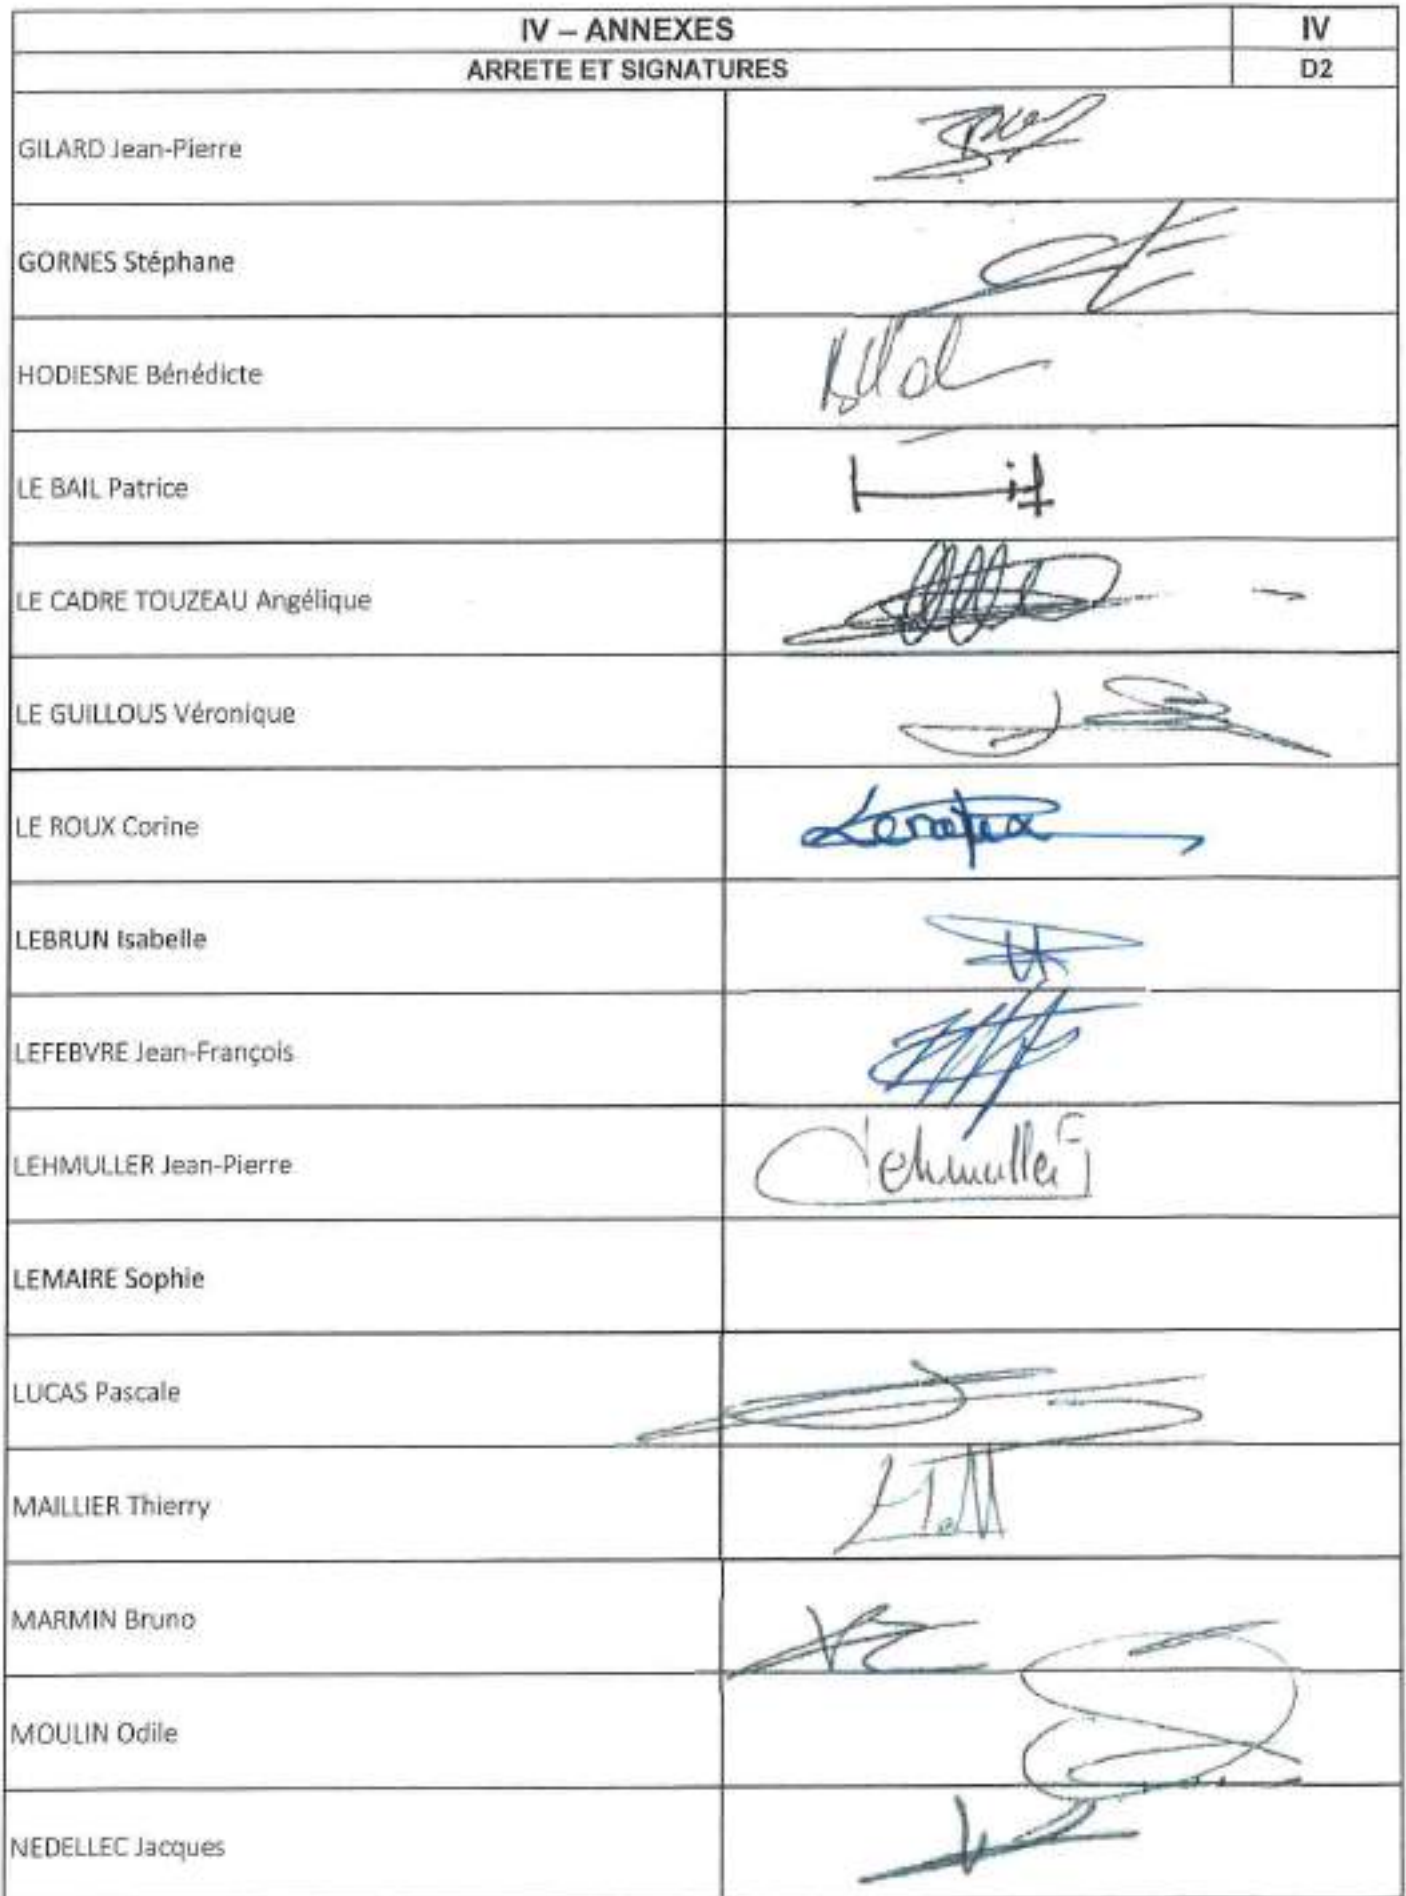 IV – ANNEXES IV
ARRETE ET SIGNATURES D2
GILARD Jean-Pierre
GORNES Stéphane
HODIESNE Bénédicte
LE BAIL Patrice
LE CADRE TOUZEAU Angélique
LE GUILLOUS Véronique
LE ROUX Corine
LEBRUN Isabelle
LEFEBVRE Jean-François
LEHMULLER Jean-Pierre
Lehmuller
LEMAIRE Sophie
LUCAS Pascale
MAILLIER Thierry
MARMIN Bruno
MOULIN Odile
NEDELLEC Jacques